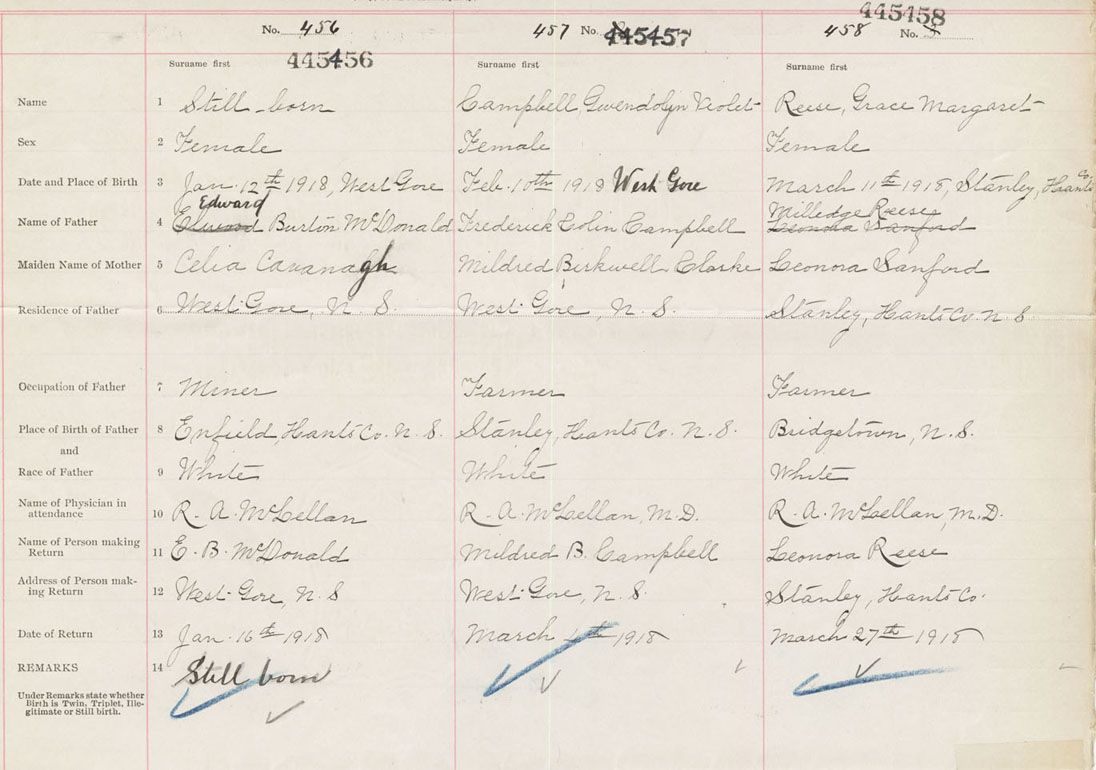 445458
No. 456 457 No. 445457 458 No.
445456
Surname first Surname first Surname first
Name 1 Still-born Campbell, Gwendolyn Violet Reese, Grace Margaret
Sex 2 Female Female Female
Date and Place of Birth 3 Jan. 12th 1918, West Gore Feb. 10th 1918 West Gore March 11th 1918, Stanley, Hants Co.
Edward Milledge Reese
Name of Father 4 Elwood Burton McDonald Frederick Colin Campbell Leonora Sanford
Maiden Name of Mother 5 Celia Cavanagh Mildred Birkwell Clarke Leonora Sanford
Residence of Father 6 West Gore, N. S. West Gore, N. S. Stanley, Hants Co. N. S.
Occupation of Father 7 Miner Farmer Farmer
Place of Birth of Father 8 Enfield, Hants Co. N. S. Stanley, Hants Co. N. S. Bridgetown, N. S.
and
Race of Father 9 White White White
Name of Physician in
attendance 10 R. A. McLellan R. A. McLellan, M.D. R. A. McLellan, M.D.
Name of Person making
Return 11 E. B. McDonald Mildred B. Campbell Leonora Reese
Address of Person mak-
ing Return 12 West Gore, N. S West Gore, N. S. Stanley, Hants Co.
Date of Return 13 Jan. 16th 1918 March 4th 1918 March 27th 1918
REMARKS 14 Still born
Under Remarks state whether
Birth is Twin, Triplet, Ille-
gitimate or Still birth.